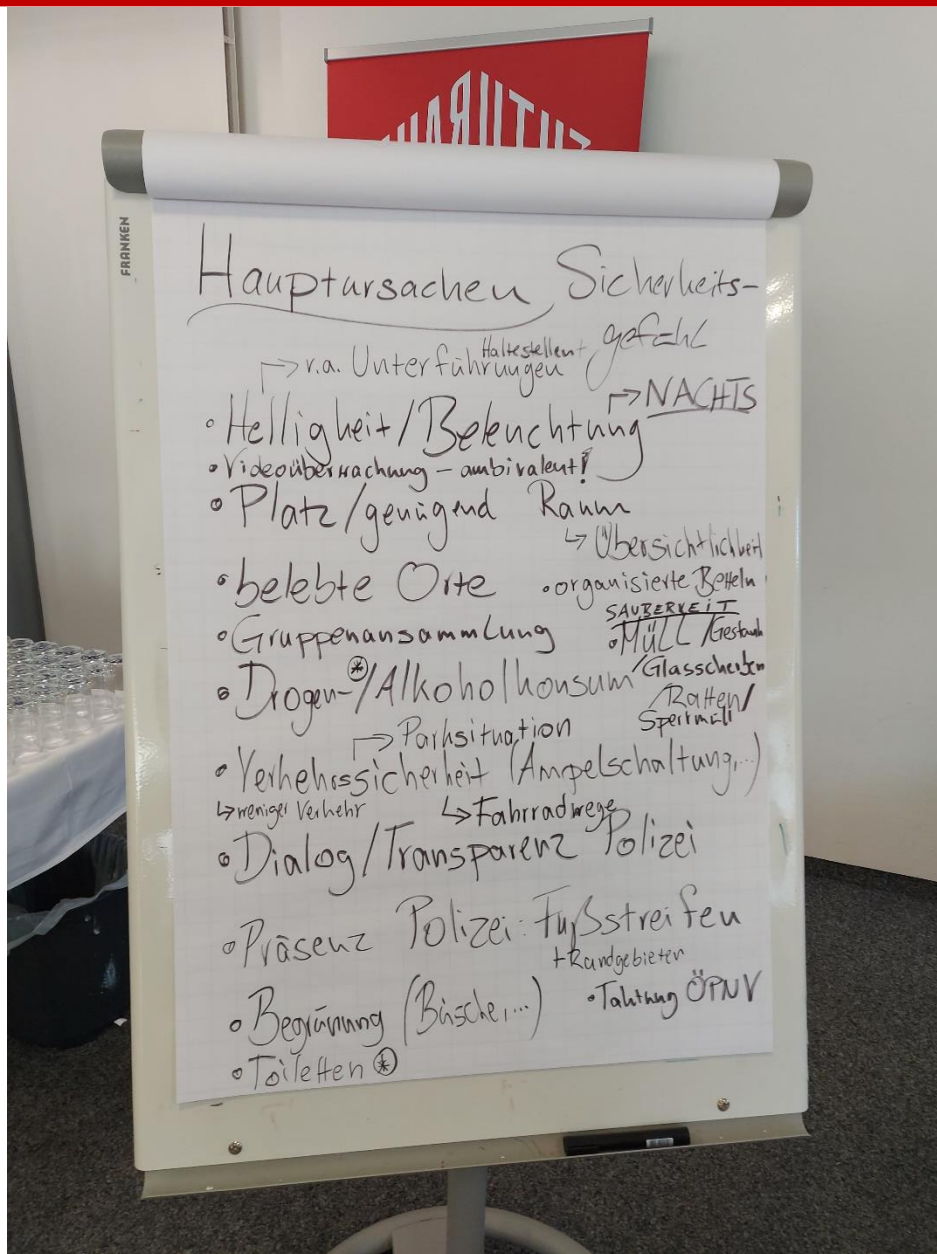 FRANKEN
Hauptursachen Sicherheits-
gefühl
↳ v.a. Unterführungen Haltestellen+
↳ NACHTS
• Helligkeit/Beleuchtung
• Videoüberwachung – ambivalent!
• Platz/genügend Raum
↳ Übersichtlichkeit
• belebte Orte
• organisierte Betteln
• Gruppenansammlung
SAUBERKEIT
• Müll/Gestank
/Glasscherben
/Ratten/
Sperrmüll
• Drogen-⊛/Alkoholkonsum
↳ Parksituation
• Verkehrssicherheit (Ampelschaltung,...)
↳ weniger Verkehr
↳ Fahrradwege
• Dialog/Transparenz Polizei
• Präsenz Polizei: Fußstreifen
+ Randgebieten
• Begrünung (Büsche,...)
• Taktung ÖPNV
• Toiletten ⊛